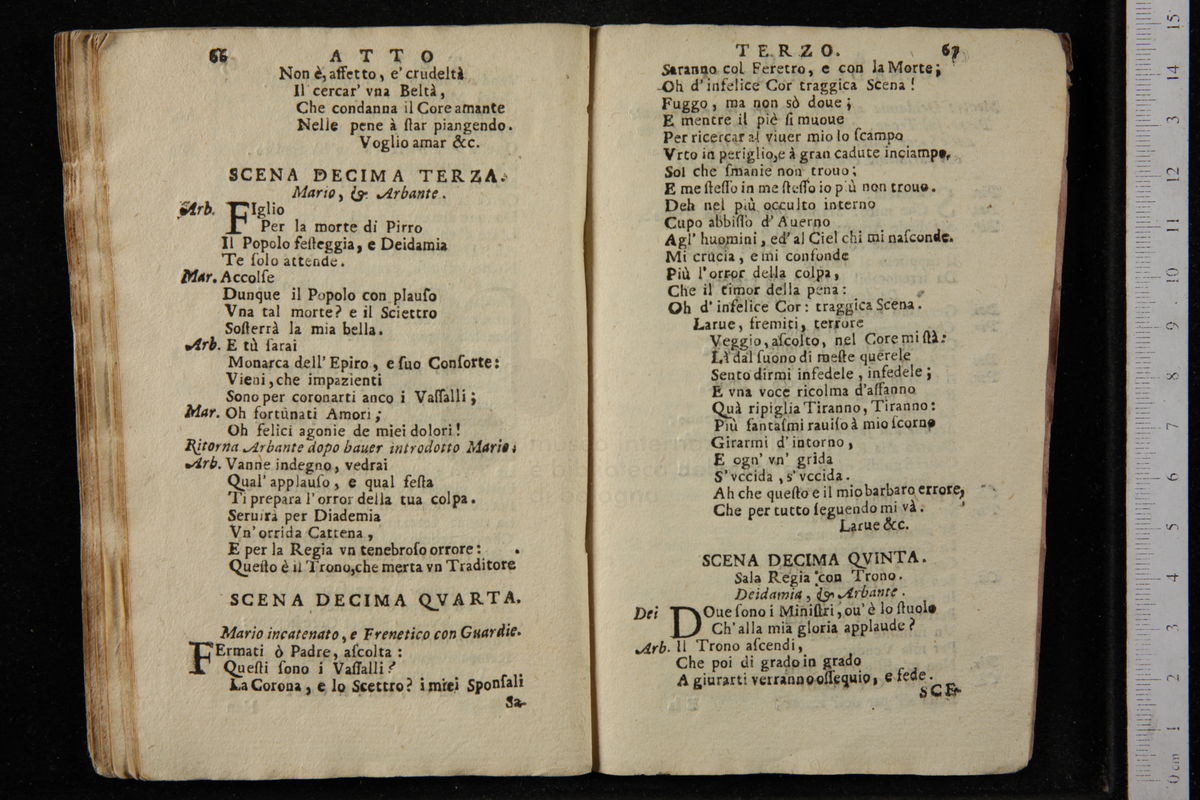 66 ATTO
Non è, affetto, e' crudeltà
Il cercar' vna Beltà,
Che condanna il Core amante
Nelle pene à ſtar piangendo.
Voglio amar &c.
SCENA DECIMA TERZA.
Mario, & Arbante.
Arb. FIglio
Per la morte di Pirro
Il Popolo feſteggia, e Deidamia
Te ſolo attende.
Mar. Accolſe
Dunque il Popolo con plauſo
Vna tal morte? e il Sciettro
Soſterrà la mia bella.
Arb. E tù ſarai
Monarca dell' Epiro, e ſuo Conſorte:
Vieni, che impazienti
Sono per coronarti anco i Vaſſalli;
Mar. Oh fortùnati Amori;
Oh felici agonie de miei dolori!
Ritorna Arbante dopo hauer introdotto Mario.
Arb. Vanne indegno, vedrai
Qual' applauſo, e qual feſta
Ti prepara l'orror della tua colpa.
Seruirà per Diademia
Vn' orrida Cattena,
E per la Regia vn tenebroſo orrore:
Queſto è il Trono, che merta vn Traditore
SCENA DECIMA QVARTA.
Mario incatenato, e Frenetico con Guardie.
FErmati ò Padre, aſcolta:
Queſti ſono i Vaſſalli?
La Corona, e lo Scettro? i miei Sponſali
Sa-
TERZO. 67
Saranno col Feretro, e con la Morte;
Oh d'infelice Cor traggica Scena!
Fuggo, ma non sò doue;
E mentre il piè ſi muoue
Per ricercar al viuer mio lo ſcampo
Vrto in periglio, e à gran cadute inciampo,
Sol che ſmanie non trouo;
E me ſteſſo in me ſteſſo io più non trouo.
Deh nel più occulto interno
Cupo abbiſſo d' Auerno
Agl' huomini, ed' al Ciel chi mi naſconde.
Mi crucia, e mi confonde
Più l'orror della colpa,
Che il timor della pena:
Oh d' infelice Cor: traggica Scena.
Larue, fremiti, terrore
Veggio, aſcolto, nel Core mi ſtà:
Là dal ſuono di meſte querele
Sento dirmi infedele, infedele;
E vna voce ricolma d'affanno
Quà ripiglia Tiranno, Tiranno:
Più fantaſmi rauiſo à mio ſcorno
Girarmi d'intorno,
E ogn' vn' grida
S'vccida, s'vccida.
Ah che queſto e il mio barbaro errore,
Che per tutto ſeguendo mi và.
Larue &c.
SCENA DECIMA QVINTA.
Sala Regia con Trono.
Deidamia, & Arbante.
Dei DOue ſono i Miniſtri, ou' è lo ſtuolo
Ch' alla mia gloria applaude?
Arb. Il Trono aſcendi,
Che poi di grado in grado
A giurarti verranno oſſequio, e fede.
SCE-